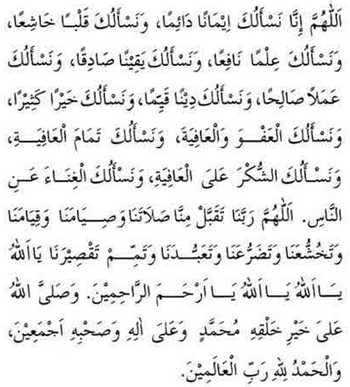 اَللّٰهُمَّ إِنَّا نَسْأَلُكَ اِيْمَانًا دَائِمًا، وَنَسْأَلُكَ قَلْبًا خَاشِعًا،
وَنَسْأَلُكَ عِلْمًا نَافِعًا، وَنَسْأَلُكَ يَقِيْنًا صَادِقًا، وَنَسْأَلُكَ
عَمَلًا صَالِحًا، وَنَسْأَلُكَ دِيْنًا قَيِّمًا، وَنَسْأَلُكَ خَيْرًا كَثِيْرًا،
وَنَسْأَلُكَ الْعَفْوَ وَالْعَافِيَةَ، وَنَسْأَلُكَ تَمَامَ الْعَافِيَةِ،
وَنَسْأَلُكَ الشُّكْرَ عَلَى الْعَافِيَةِ، وَنَسْأَلُكَ الْغِنَاءَ عَنِ
النَّاسِ. اَللّٰهُمَّ رَبَّنَا تَقَبَّلْ مِنَّا صَلَاتَنَا وَصِيَامَنَا وَقِيَامَنَا
وَتَخَشُّعَنَا وَتَضَرُّعَنَا وَتَعَبُّدَنَا وَتَمِّمْ تَقْصِيْرَنَا يَا اَللهُ
يَا اَللهُ يَا اَللهُ يَا اَرْحَمَ الرَّاحِمِيْنَ. وَصَلَّى اللهُ
عَلَى خَيْرِ خَلْقِهِ مُحَمَّدٍ وَعَلَى اٰلِهِ وَصَحْبِهِ اَجْمَعِيْنَ،
وَالْحَمْدُ لِلهِ رَبِّ الْعَالَمِيْنَ.